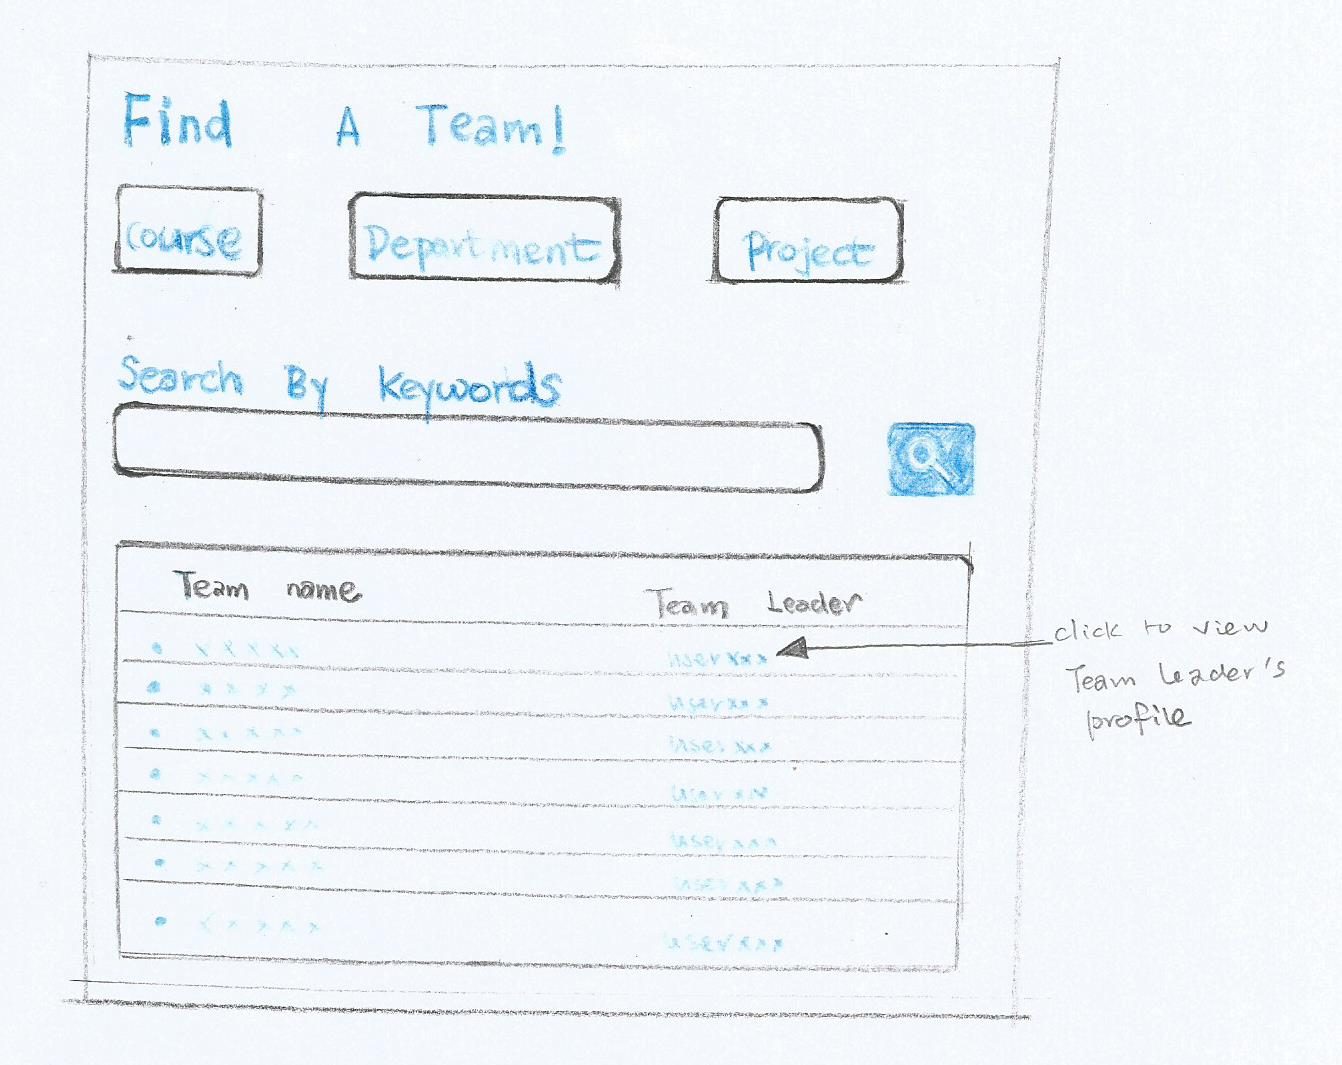 Find A Team!
Course Department Project
Search By Keywords
Team name Team Leader
xxxxx userxxx
xxxx userxxx
xxxxx userxxx
xxxxx userxxx
xxxxx userxxx
xxxxx userxxx
xxxxx userxxx
click to view
Team Leader's
profile